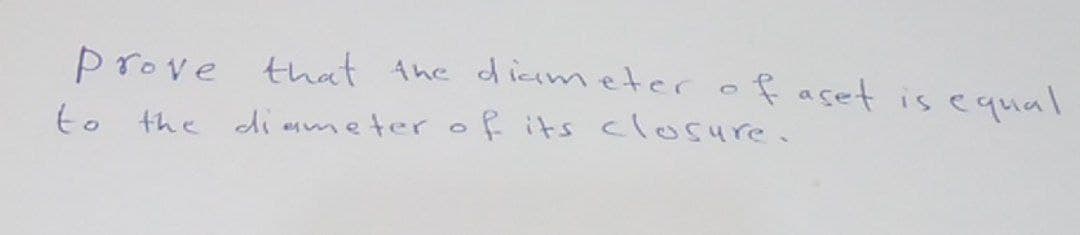 Prove that the diameter of aset is equal
to the diameter of its closure.